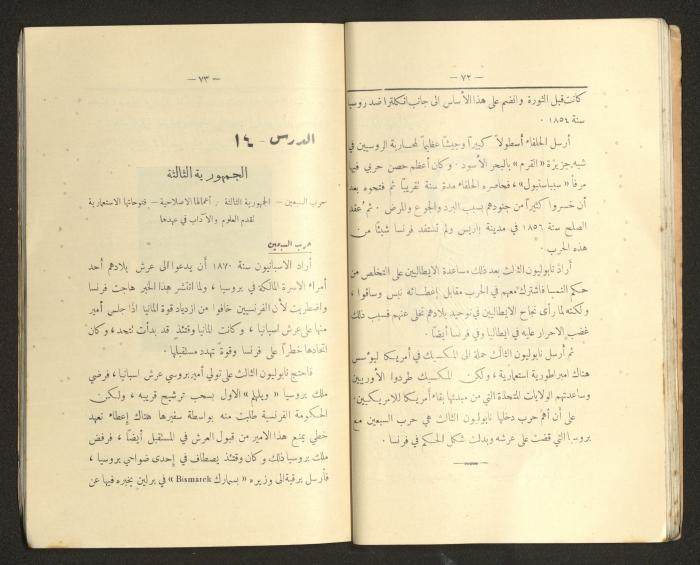 — ٧٢ —
كانت قبل الثورة وانضم على هذا الأساس الى جانب انكلترا ضد روسيا
سنة ١٨٥٤ .
أرسل الحلفاء أسطولاً كبيراً وجيشاً عظيماً لمحاربة الروسيين في
شبه جزيرة « القرم » بالبحر الأسود . وكان أعظم حصن حربي فيها
مرفأ « سيباستابول » ، فحاصره الحلفاء مدة سنة تقريباً ثم فتحوه بعد
أن خسروا كثيراً من جنودهم بسبب البرد والجوع والمرض . ثم عقد
الصلح سنة ١٨٥٦ في مدينة باريس ولم تستفد فرنسا شيئاً من
هذه الحرب .
أراد نابوليون الثالث بعد ذلك مساعدة الايطاليين على التخلص من
حكم النمسا فاشترك معهم في الحرب مقابل إعطائه نيس وسافوا ،
ولكنه لما رأى نجاح الايطاليين في توحيد بلادهم تخلى عنهم فسبب ذلك
غضب الاحرار عليه في ايطاليا وفي فرنسا أيضاً .
ثم أرسل نابوليون الثالث حملة الى المكسيك في أمريكا ليؤسس
هناك امبراطورية استعمارية ، ولكن المكسيك طردوا الأوربيين
وساعدتهم الولايات المتحدة التي من مبدئها بقاء أمريكا للامريكيين .
على أن أهم حرب دخلها نابوليون الثالث هي حرب السبعين مع
بروسيا التي قضت على عرشه وبدلت شكل الحكم في فرنسا .
— ٧٣ —
الدرس - ١٤
الجمهورية الثالثة
حرب السبعين — الجمهورية الثالثة ، أعمالها الاصلاحية — فتوحاتها الاستعمارية
تقدم العلوم والآداب في عهدها
حرب السبعين
أراد الاسبانيون سنة ١٨٧٠ أن يدعوا الى عرش بلادهم أحد
أمراء الاسرة المالكة في بروسيا ، ولما انتشر هذا الخبر هاجت فرنسا
واضطربت لأن الفرنسيين خافوا من ازدياد قوة المانيا اذا جلس أمير
منها على عرش اسبانيا ، وكانت المانيا وقتئذ قد بدأت تتحد ، وكان
اتحادها خطراً على فرنسا وقوة تهدد مستقبلها .
فاحتج نابوليون الثالث على تولي أمير بروسي عرش اسبانيا ، فرضي
ملك بروسيا « ويلهلم » الاول بسحب ترشيح قريبه ، ولكن
الحكومة الفرنسية طلبت منه بواسطة سفيرها هناك إعطاء تعهد
خطي يمنع هذا الامير من قبول العرش في المستقبل أيضاً ، فرفض
ملك بروسيا ذلك وكان وقتئذ يصطاف في إحدى ضواحي بروسيا ،
فأرسل برقية الى وزيره « بسمارك Bismarck » في برلين يخبره فيها عن